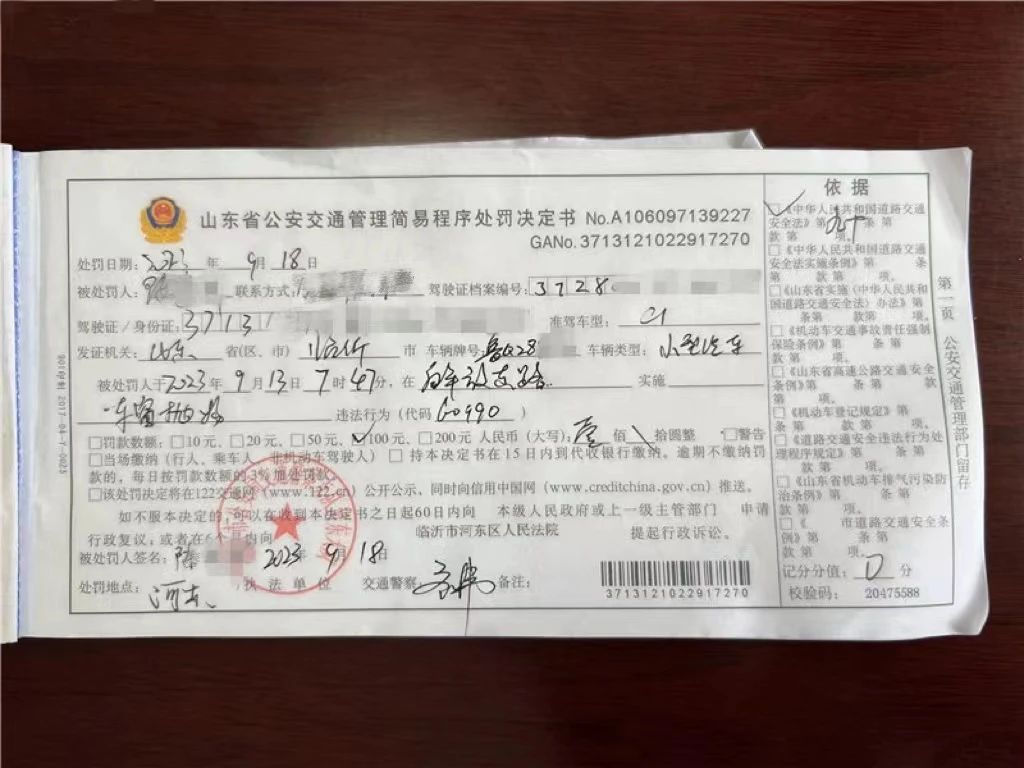 山东省公安交通管理简易程序处罚决定书 No.A106097139227
GANo.3713121022917270
处罚日期: 2023 年 9月 18日
被处罚人: 联系方式: 驾驶证档案编号: 3728
驾驶证/身份证: 3713 准驾车型: C1
发证机关: 山东 省(区、市) 临沂 市 车辆牌号: 鲁Q28 车辆类型: 小型汽车
被处罚人于2023年 9月 13日 7时 47分, 在 实施
车窗抛物 违法行为(代码 60990 )
□罚款数额: □10元、□20元、□50元、☑100元、□200元 人民币(大写): 壹 佰 拾圆整 □警告
□当场缴纳(行人、乘车人、非机动车驾驶人) □ 持本决定书在15日内到代收银行缴纳。逾期不缴纳罚
款的,每日按罚款数额的3%加处罚款。
□该处罚决定将在122交通网(www.122.cn)公开公示、同时向信用中国网(www.creditchina.gov.cn)推送。
如不服本决定的,可以在收到本决定书之日起60日内向 本级人民政府或上一级主管部门 申请
行政复议;或者在6个月内向 临沂市河东区人民法院 提起行政诉讼。
被处罚人签名: 陈 2023年 9月18日
处罚地点: 河东 执法单位 交通警察: 备注:
3713121022917270
依据
☑《中华人民共和国道路交通
安全法》第 九十 条 第
款 第 项。
□《中华人民共和国道路交通
安全法实施条例》第 条
第 款 第 项。
□《山东省实施〈中华人民共和
国道路交通安全法〉办法》第
条第 款第 项。
□《机动车交通事故责任强制
保险条例》第 条 第
款 第 项。
□《山东省高速公路交通安全
条例》第 条 第 款
第 项。
□《机动车登记规定》第
条 第 款 第 项。
□《道路交通安全违法行为处
理程序规定》第 条 第
款 第 项。
□《山东省机动车排气污染防
治条例》第 条 第
款 第 项。
□《 市道路交通安全
条例》第 条 第
款 第 项。
记分分值: 0 分
校验码: 20475588
第一页 公安交通管理部门留存